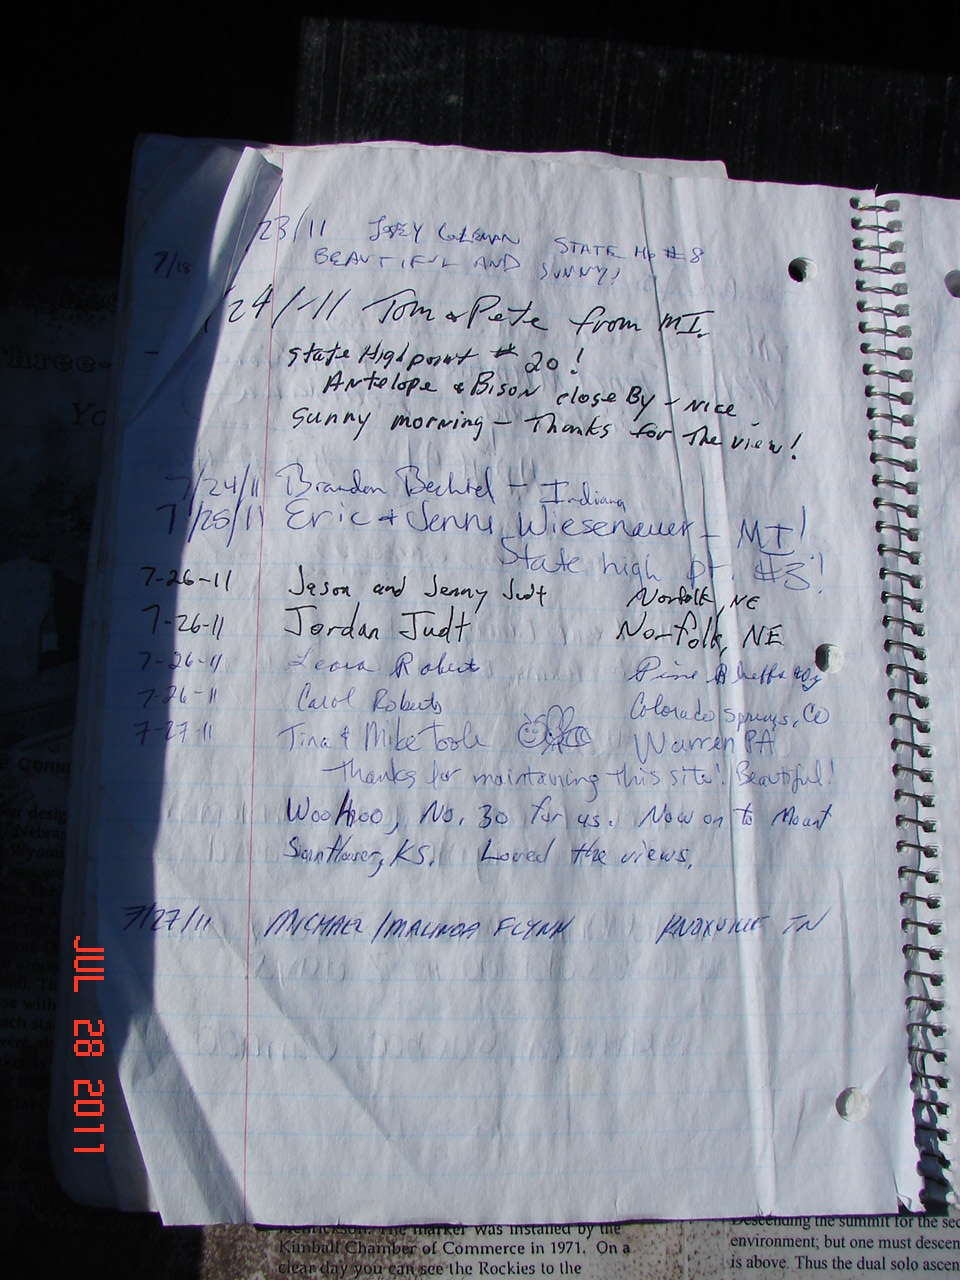 23/11 JOEY COLEMAN STATE HP #8
7/18
BEAUTIFUL AND SUNNY!
24/11 Tom & Pete from MI.
State Highpoint # 20!
Antelope & Bison close By - nice
sunny morning - Thanks for the view!
7/24/11 Brandon Bechtel - Indiana
7/25/11 Eric & Jenni Wiesenauer - MI!
State high pt. #3!
7-26-11 Jason and Jenny Judt Norfolk, NE
7-26-11 Jordan Judt Norfolk, NE
7-26-11 Roberts Pine Bluffs Wy
7-26-11 Carol Roberts Colorado Springs, CO
7-27-11 Tina & Mike Toole Warren PA
Thanks for maintaining this site! Beautiful!
WooHoo, No. 30 for us. Now on to Mount
Sunflower, KS. Loved the views.
7/27/11 MICHAEL / MALINDA FLYNN KNOXVILLE TN
JUL 28 2011
The marker was installed by the
Kimball Chamber of Commerce in 1971. On a
clear day you can see the Rockies to the
Descending the summit for the
environment; but one must
is above. Thus the dual solo